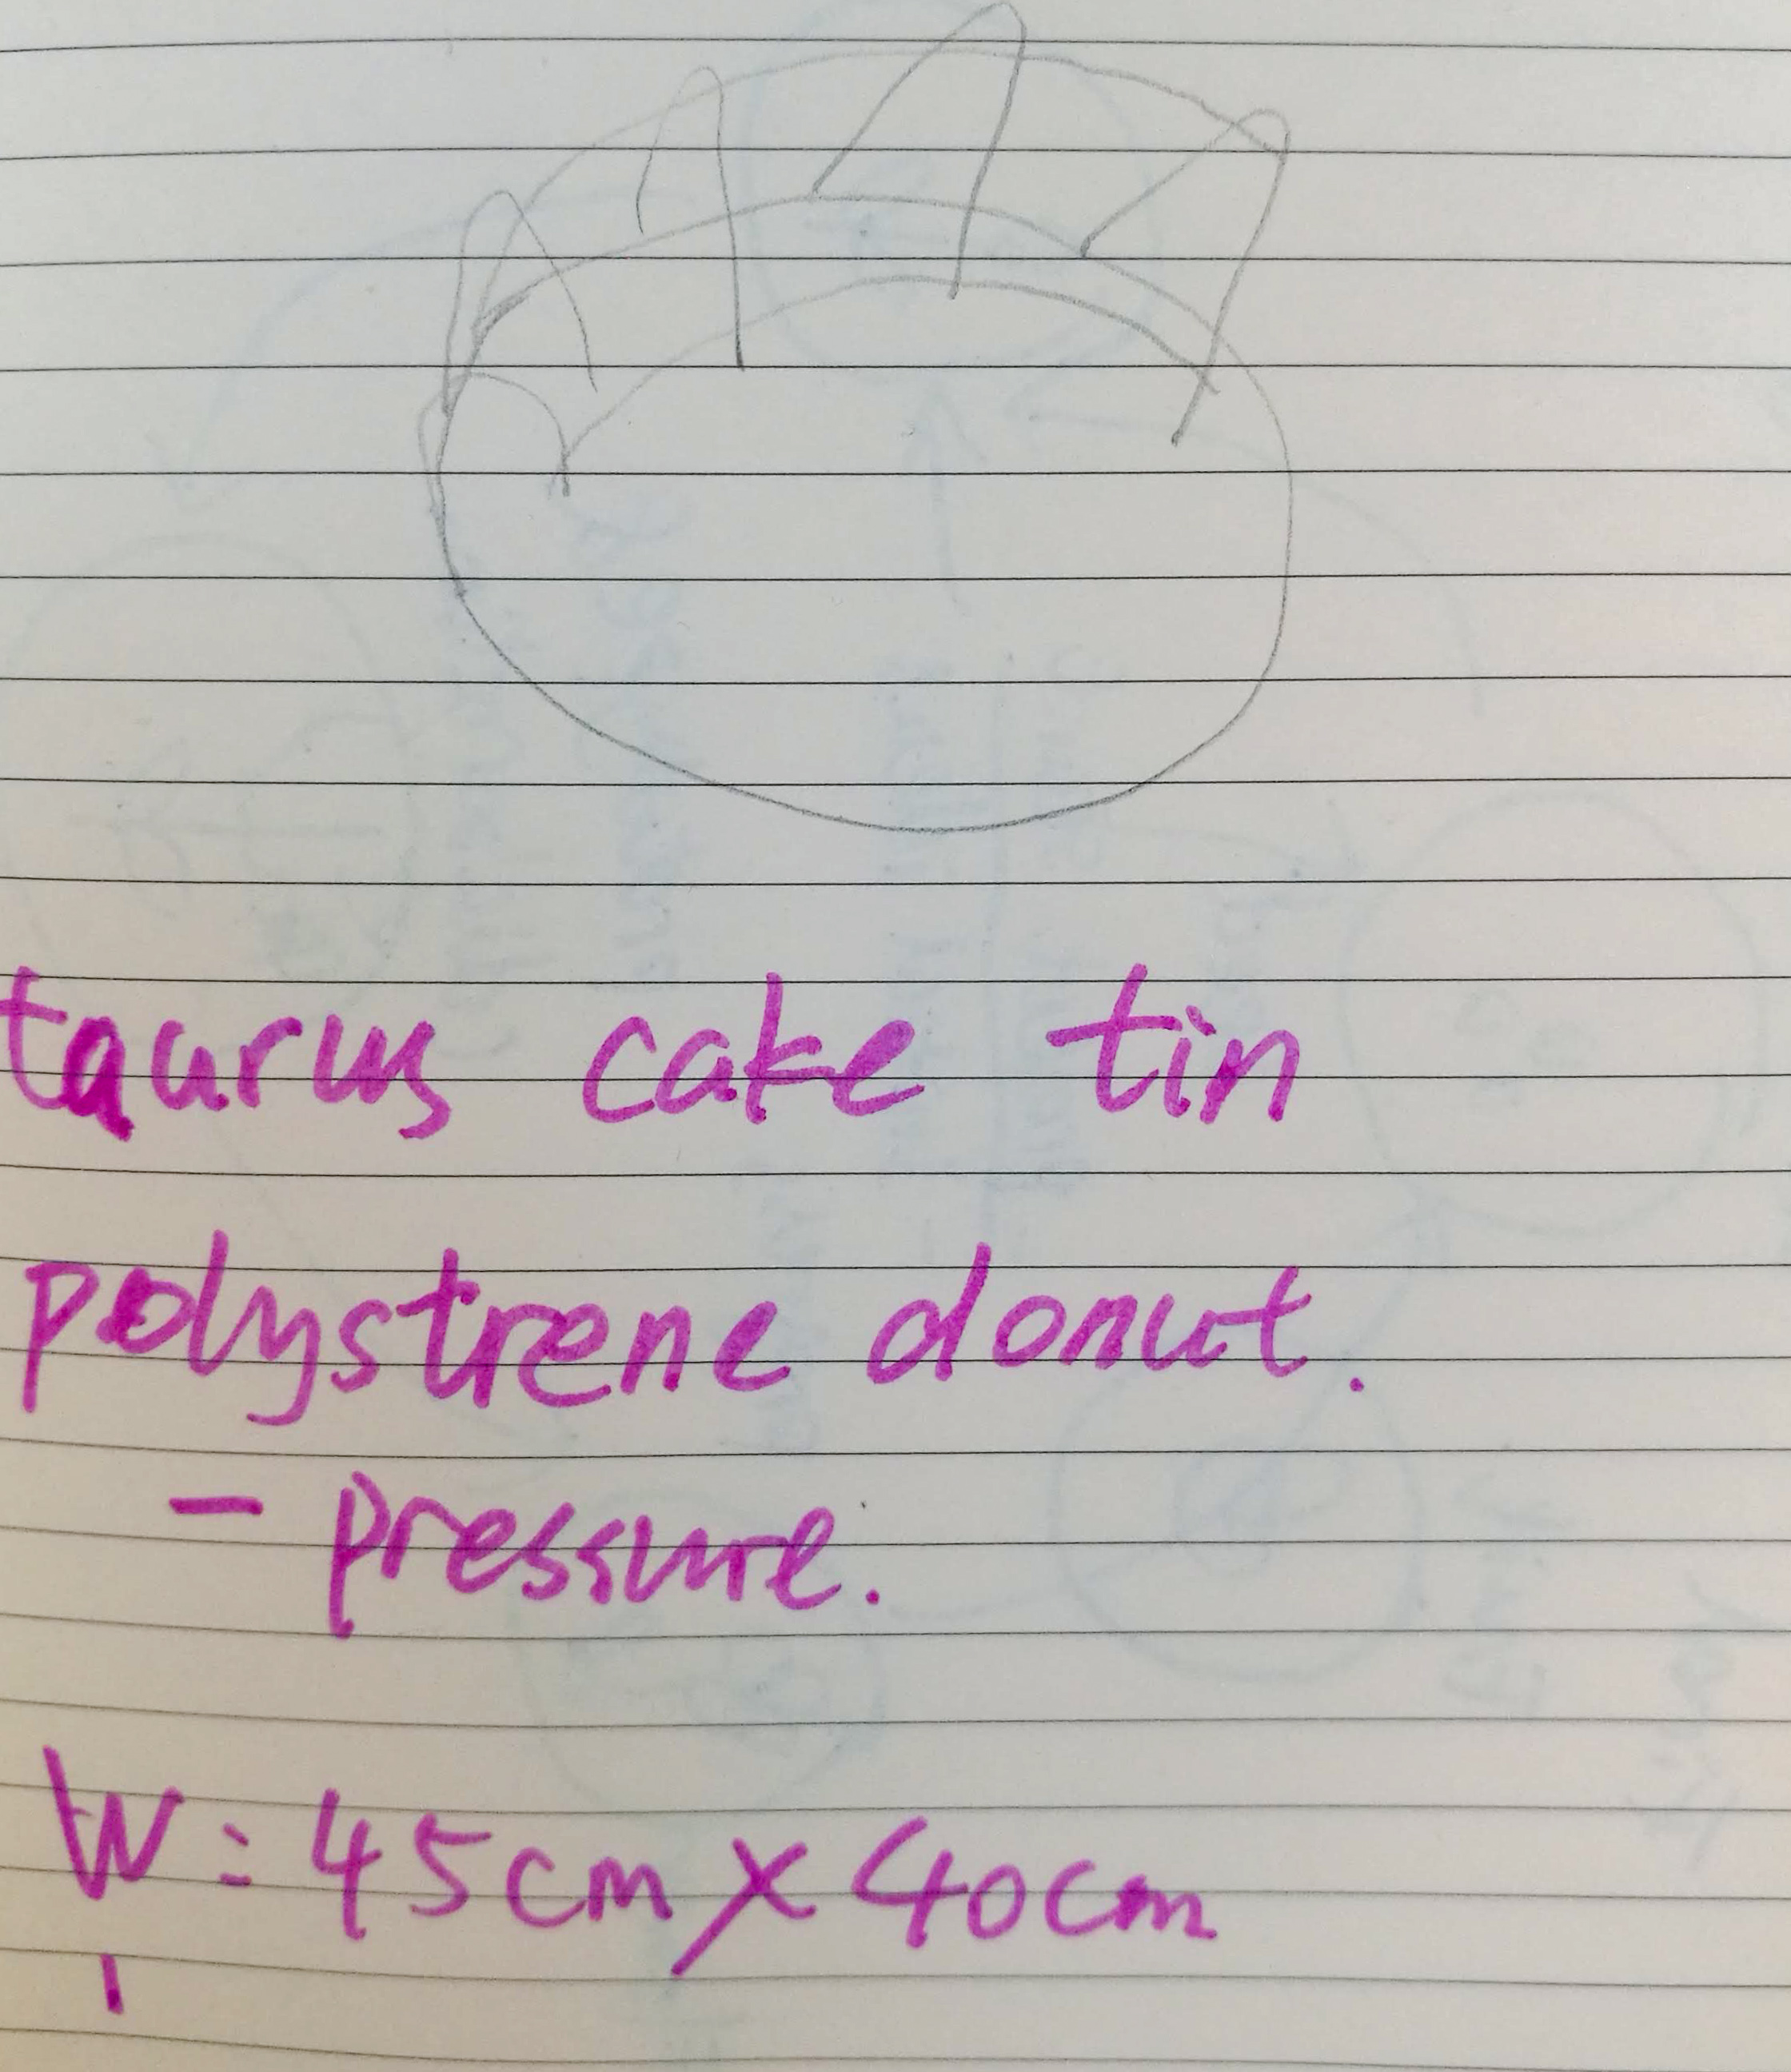 taurus cake tin
polystrene donut.
- pressure.
W = 45cm x 40cm